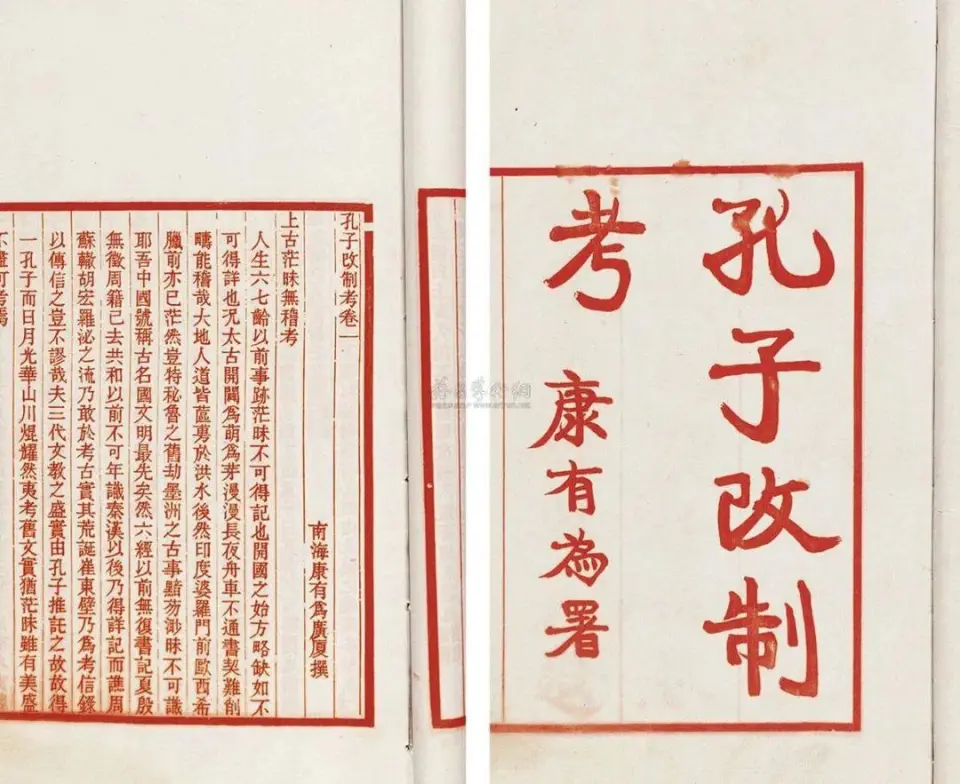 孔子改制
考 康有為署
孔子改制考卷一
南海康有爲廣厦撰
上古茫昧無稽考
人生六七齡以前事跡茫昧不可得記也開國之始方略缺如不
可得詳也况太古開闢爲萌爲芽漫漫長夜舟車不通書契難削
疇能稽哉大地人道皆蓲於洪水後然印度婆羅門前歐西希
臘前亦已茫然豈特秘魯之舊劫墨洲之古事黯芴渺昧不可識
耶吾中國號稱古名國文明最先矣然六經以前無復書記夏殷
無徵周籍已去共和以前不可年識秦漢以後乃得詳記而譙周
蘇轍胡宏羅泌之流乃敢於考古實其荒誕崔東壁乃爲考信錄
以傳信之豈不謬哉夫三代文教之盛實由孔子推託之故故得
一孔子而日月光華山川焜耀然夷考舊文實猶茫昧雖有美盛
不盡可考焉